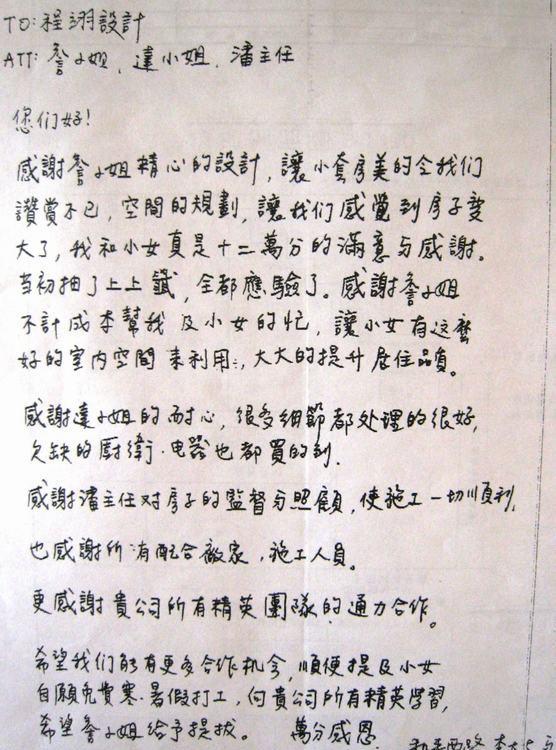 TO: 程翊設計
ATT: 詹小姐, 達小姐, 潘主任
您们好!
感謝詹小姐精心的設計, 讓小套房美的令我们
讚賞不已, 空間的規劃, 讓我们感覺到房子变
大了, 我和小女真是十二萬分的滿意与感謝。
当初抽了上上籤, 全都應驗了。感謝詹小姐
不計成本幫我及小女的忙, 讓小女有这麼
好的室内空間來利用, 大大的提升居住品質。
感謝達小姐的耐心, 很多细節都处理的很好,
欠缺的廚衛.电器也都買的到.
感謝潘主任对房子的监督与照顧, 使施工一切順利,
也感謝所有配合廠家, 施工人員。
更感謝貴公司所有精英團隊的通力合作。
希望我们能有更多合作机会, 順便提及小女
自願免費寒.暑假打工, 向貴公司所有精英學習,
希望詹小姐給予提拔。 萬分感恩